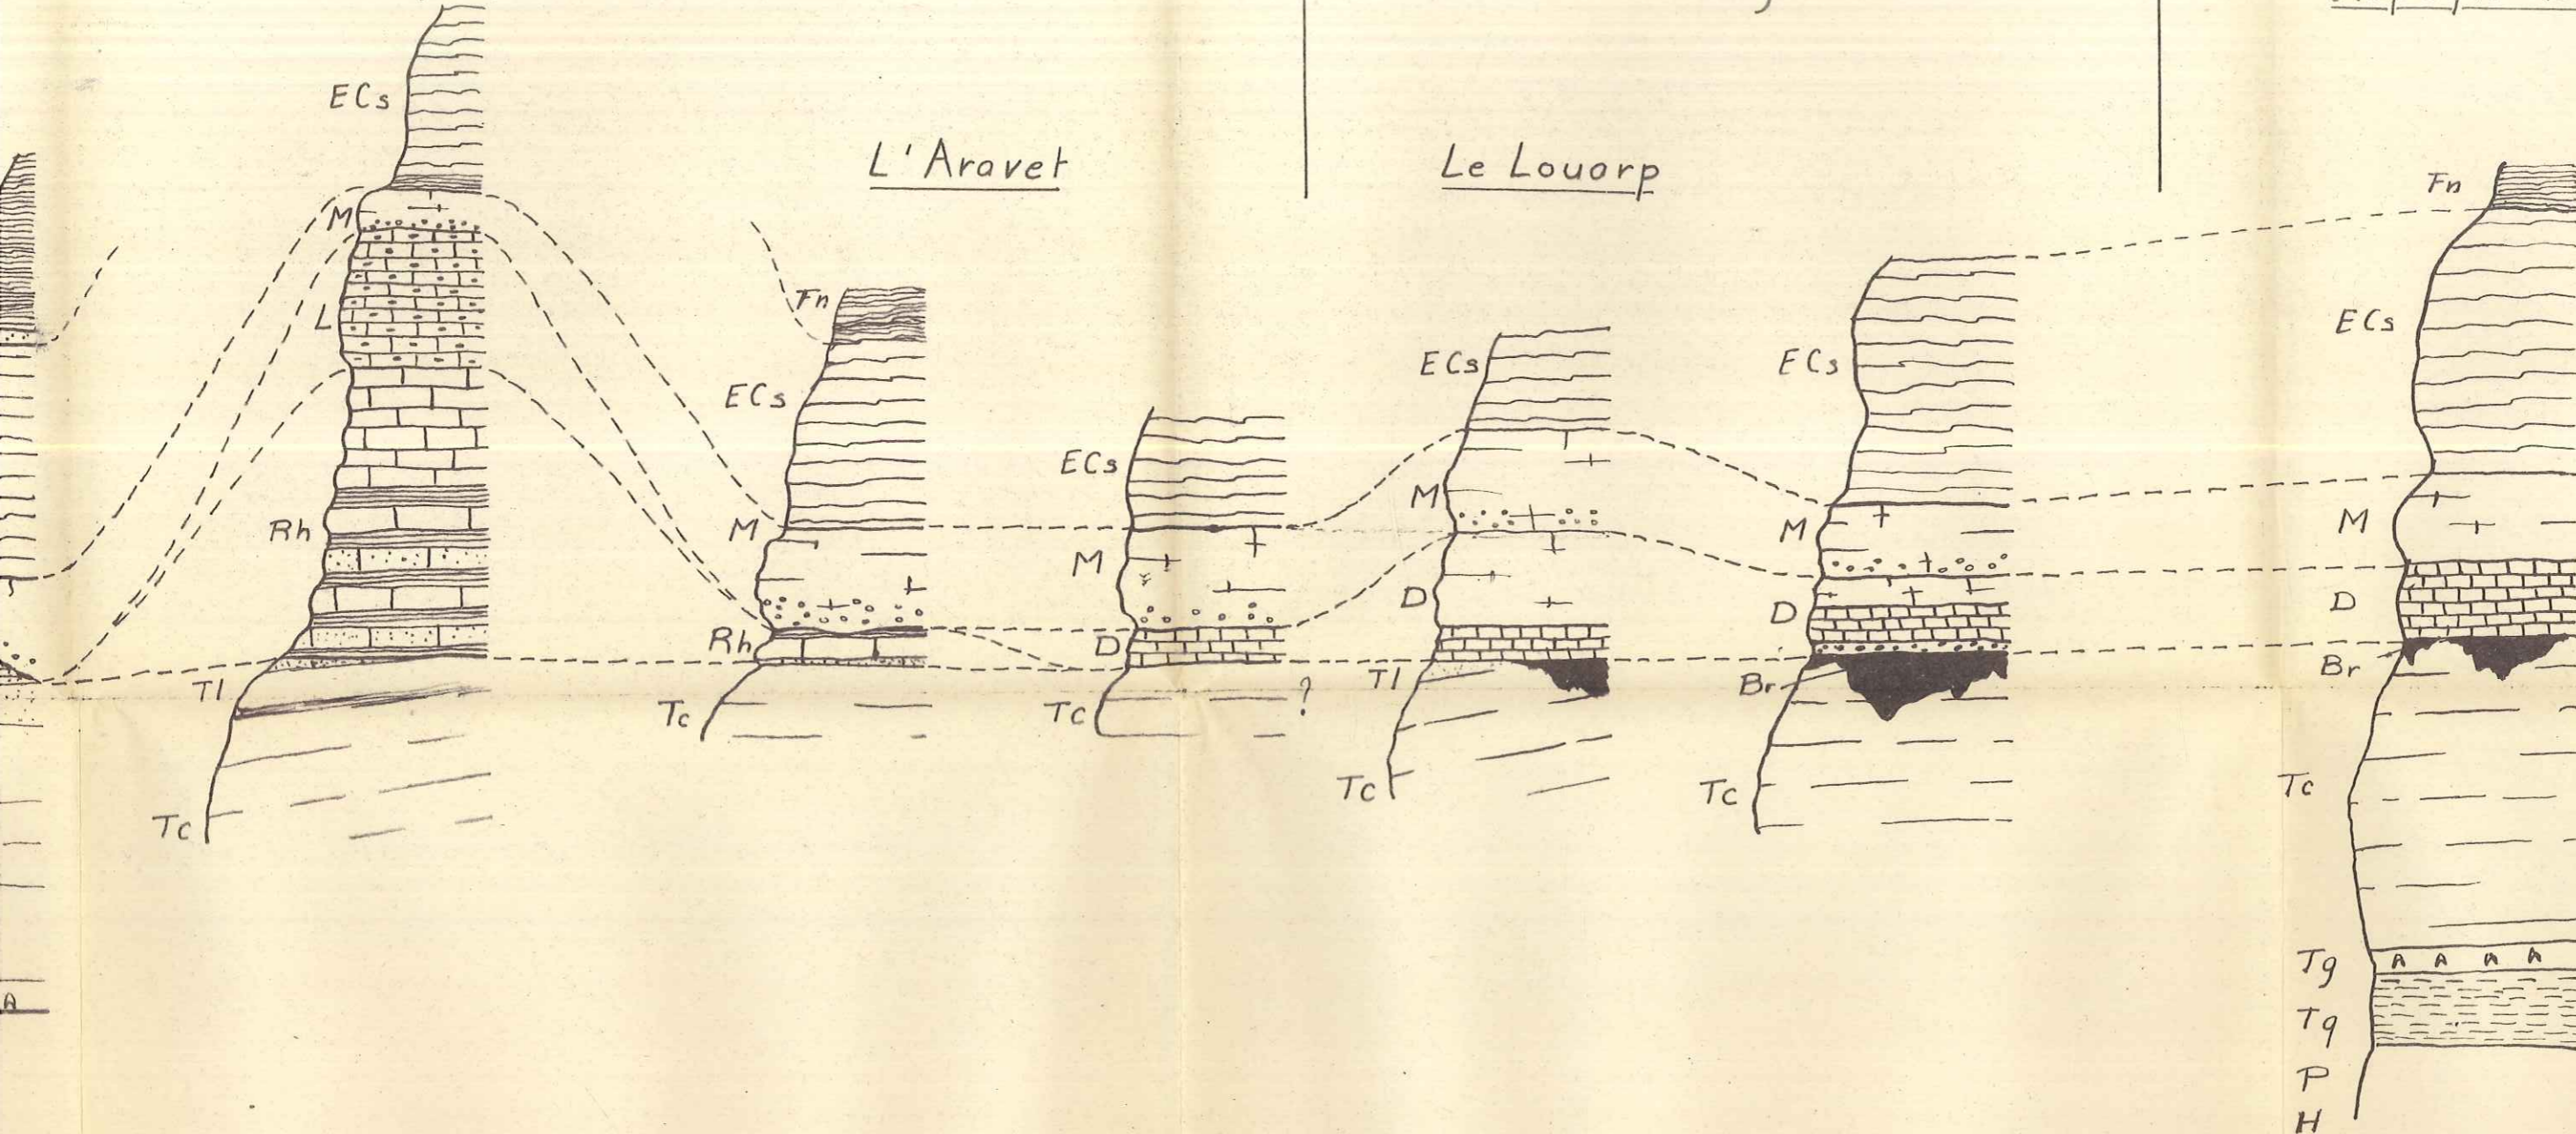 L'Aravet
Le Louorp
ECs
M
L
Rh
Tl
Tc
A
Fn
ECs
M
Rh
Tc
ECs
M
D
Tc
?
ECs
M
D
Tl
Tc
ECs
M
D
Br
Tc
Fn
ECs
M
D
Br
Tc
Tg
A A A A
Tq
P
H